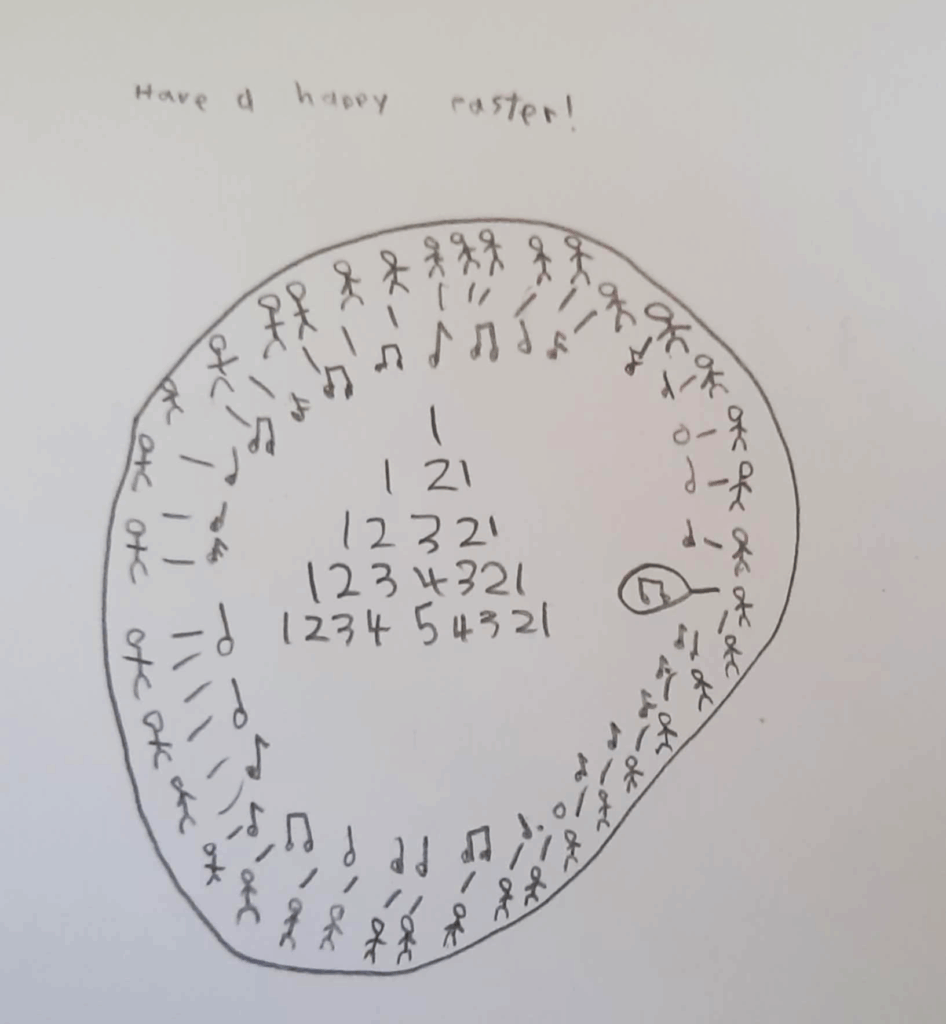 Have a happy easter!
1
1 21
12 321
123 4321
1234 54321